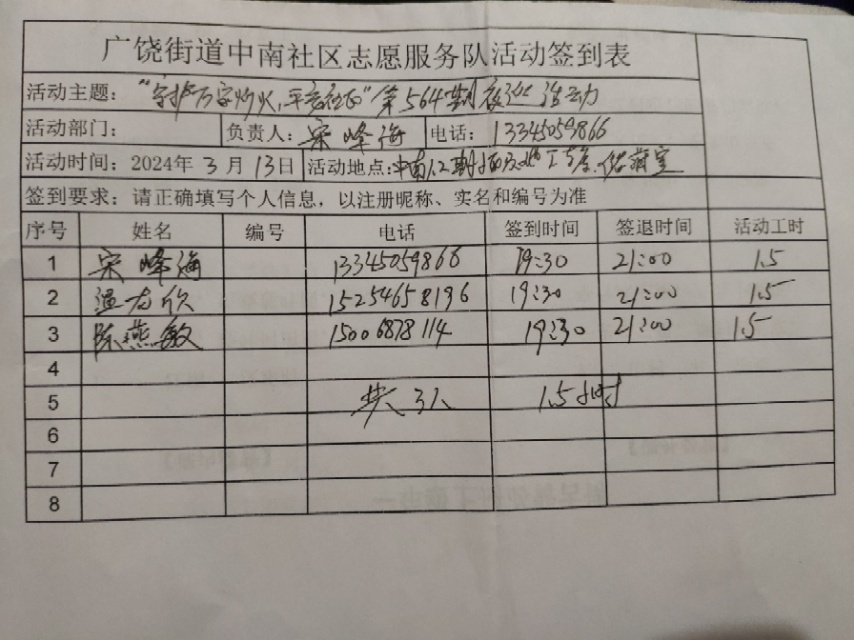 广饶街道中南社区志愿服务队活动签到表
活动主题：“守护万家灯火，平安社区”第564期夜巡活动
活动部门： 负责人：宋峰海 电话：13345059866
活动时间：2024年3月13日 活动地点：中南1.2期 储藏室
签到要求：请正确填写个人信息，以注册昵称、实名和编号为准
序号 姓名 编号 电话 签到时间 签退时间 活动工时
1 宋峰海 13345059866 19:30 21:00 1.5
2 温 欣 15254658196 19:30 21:00 1.5
3 陈燕敏 15006878114 19:30 21:00 1.5
4
5 共3人 1.5小时
6
7
8